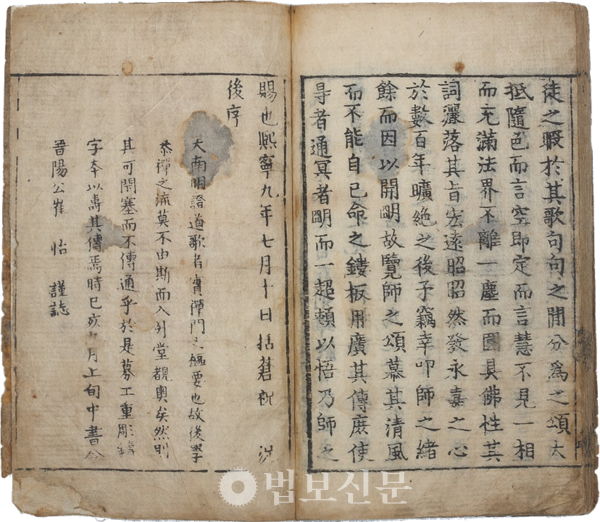 徒之暇於其歌句句之間分爲之頌大
抵隨色而言空即定而言慧不見一相
而充滿法界不離一塵而圓具佛性其
詞灑落其旨宏遠昭昭然發永嘉之心
於數百年曠絶之後予竊幸叩師之緖
餘而因以開明故覽師之頌慕其清風
而不能自已命之鏤板用廣其傳庶使
㝵者通冥者明而一超頓以悟乃師之
賜也熙寧九年七月十日括蒼祝 況
後序
夫南明證道歌者實禪門之樞要也故後學
叅禪之流莫不由斯而入升堂覩奧矣然則
其可閉塞而不傳通乎於是募工重彫鑄
字本以壽其傳焉時巳亥 月上旬中書令
晉陽公崔 怡 謹誌
법보신문